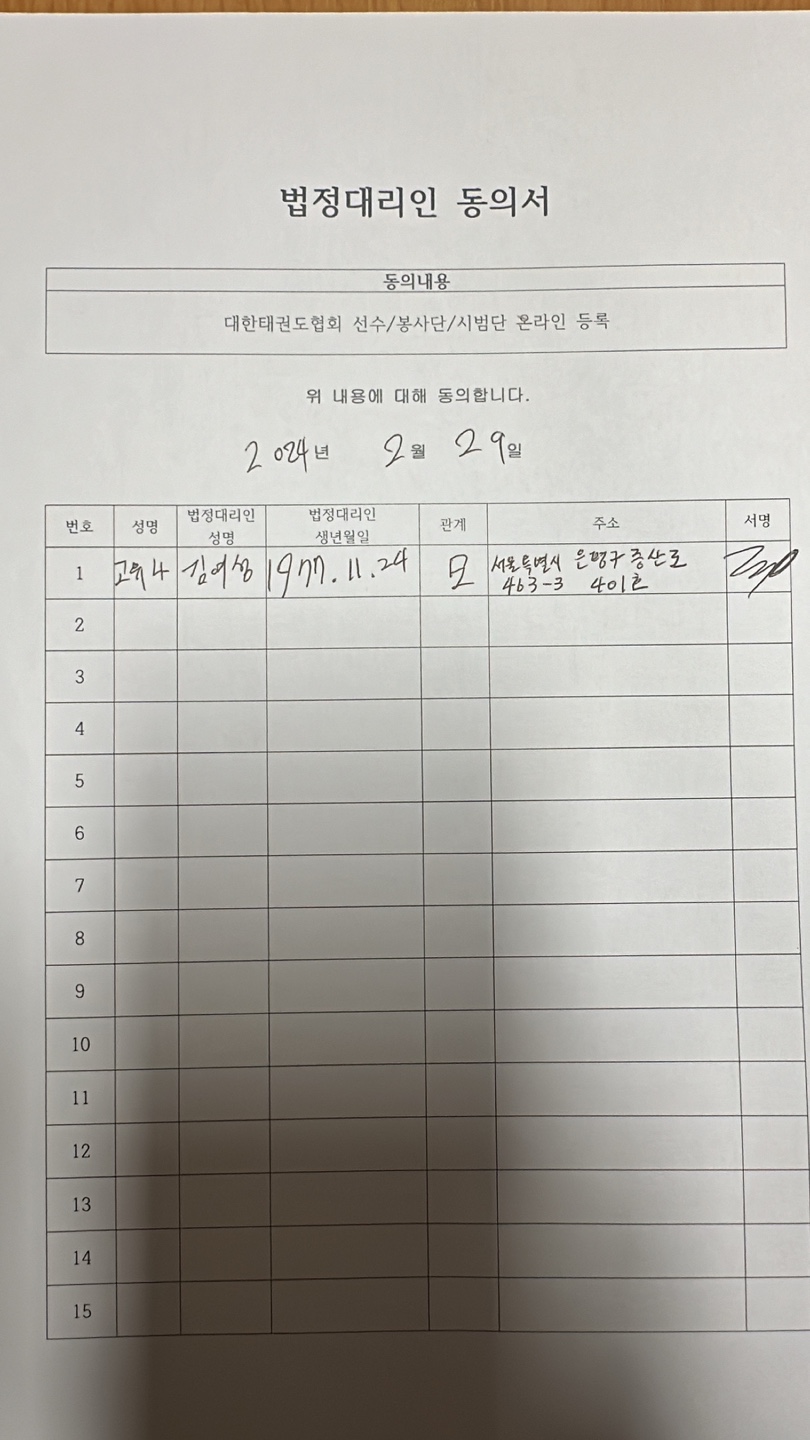 법정대리인 동의서
동의내용
대한태권도협회 선수/봉사단/시범단 온라인 등록
위 내용에 대해 동의합니다.
2024년 2월 29일
번호 성명 법정대리인 성명 법정대리인 생년월일 관계 주소 서명
1 고유나 김여성 1977.11.24 모 서울특별시 은평구 증산로
463-3 401호
2
3
4
5
6
7
8
9
10
11
12
13
14
15